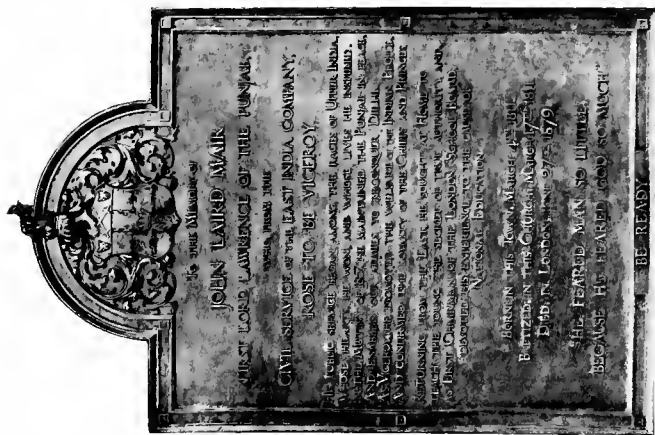 TO THE MEMORY OF
JOHN LAIRD MAIR
FIRST LORD LAWRENCE OF THE PUNJAB,
WHO FROM THE
CIVIL SERVICE OF THE EAST INDIA COMPANY,
ROSE TO BE VICEROY.
HIS PUBLIC SERVICE BEGAN AMONG THE RACES OF UPPER INDIA,
WHOSE HEARTS HE WON, AND WHOSE LIVES HE
IN THE MUTINY OF 1857 HE MAINTAINED THE PUNJAB IN PEACE,
AND ENABLED OUR ARMIES TO RECONQUER DELHI.
AS VICEROY HE PROMOTED THE WELFARE OF THE INDIAN PEOPLE,
AND CONFIRMED THE LOYALTY OF THE CHIEFS AND PRINCES
RETURNING FROM THE EAST, HE SOUGHT AT HOME TO
TEACH THE YOUNG THE SECRET OF TRUE AUTHORITY, AND
AS FIRST CHAIRMAN OF THE LONDON SCHOOL BOARD,
DEVOTED HIS EXPERIENCE TO THE CAUSE OF
NATIONAL EDUCATION
BORN IN THIS TOWN, MARCH 4TH 1811
BAPTIZED IN THIS CHURCH, MARCH 17TH 1811
DIED IN LONDON, JUNE 27TH 1879.
"HE FEARED MAN SO LITTLE,
BECAUSE HE FEARED GOD SO MUCH"
BE READY